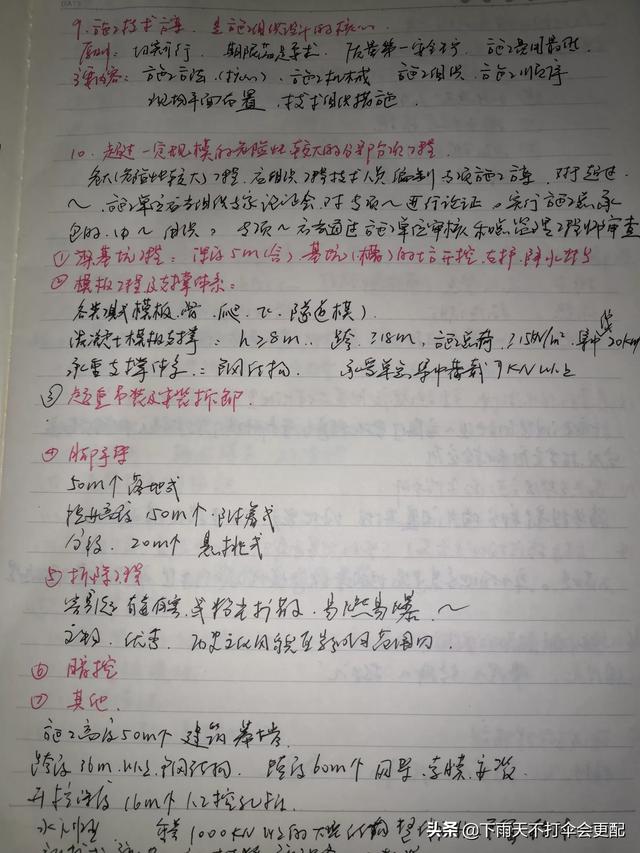 9. 施工技术方案, 是施工组织设计的核心
原则: 切实可行 期限满足要求 质量第一安全第一 施工费用最低
主要内容: 施工方法(核心)、施工机械 施工组织、施工顺序
现场平面布置 技术组织措施
10. 超过一定规模的危险性较大的分部分项工程
危大(危险性较大)工程, 应组织工程技术人员编制专项施工方案, 对于超过
～, 施工单位应当组织专家论证会, 对专项～进行论证。实行施工总承
包的, 由～组织, 专项～应当通过施工单位审核和总监理工程师审查
① 深基坑工程: 深度5m(含)基坑(槽)的土方开挖、支护、降水
② 模板工程及支撑体系:
各类工具式模板: 滑、爬、飞、隧道模)
混凝土模板支撑: h≥8m. 跨≥18m, 施工总荷≥15KN/m² 集中线20KN/m
承重支撑体系: 钢结构 承受单点集中荷载7KN以上
③ 起重吊装及安装拆卸
④ 脚手架
50m↑落地式
提升高度150m↑附着式
分段 20m↑ 悬挑式
⑤ 拆除工程
容易引起有毒有害、或粉尘扩散、易燃易爆 ～
文物、优秀、历史文化风貌区 范围内
⑥ 暗挖
⑦ 其他
施工高度50m↑建筑幕墙
跨度36m以上钢结构 跨度60m↑网架、索膜安装
开挖深度16m↑人工挖孔桩
重量1000KN以上的大型结构整体
头条 @下雨天不打伞会更配